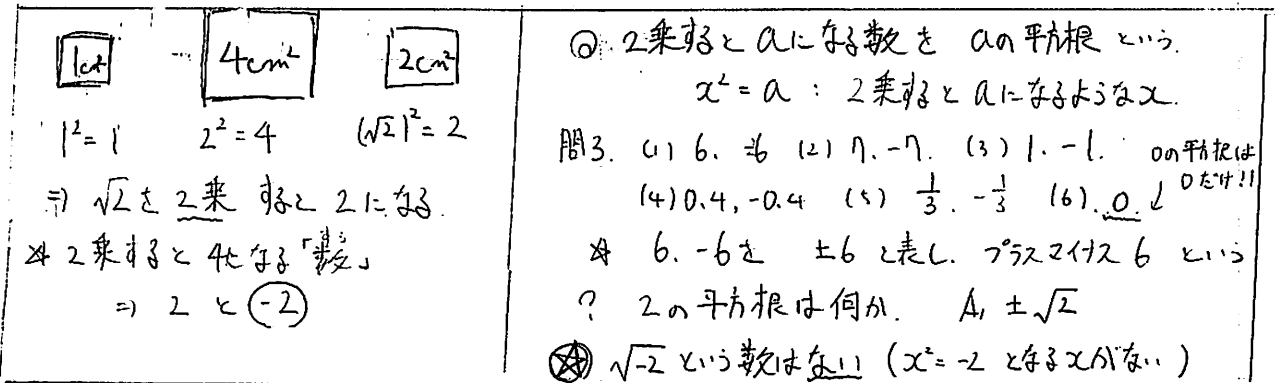 1cm² … 4cm² 2cm²
1² = 1 2² = 4 (√2)² = 2
⇒ √2を2乗すると2になる.
※ 2乗すると4となる「数」
⇒ 2 と -2
◎ 2乗するとaになる数を aの平方根 という.
x² = a : 2乗するとaになるようなx.
問3. (1) 6. -6 (2) 7. -7. (3) 1. -1. 0の平方根は
0だけ!!
(4) 0.4, -0.4 (5) 1/3. -1/3 (6). 0.
※ 6. -6を ±6 と表し. プラスマイナス6 という
? 2の平方根は何か. A, ±√2
☆ √-2 という数はない (x² = -2 となるxがない)